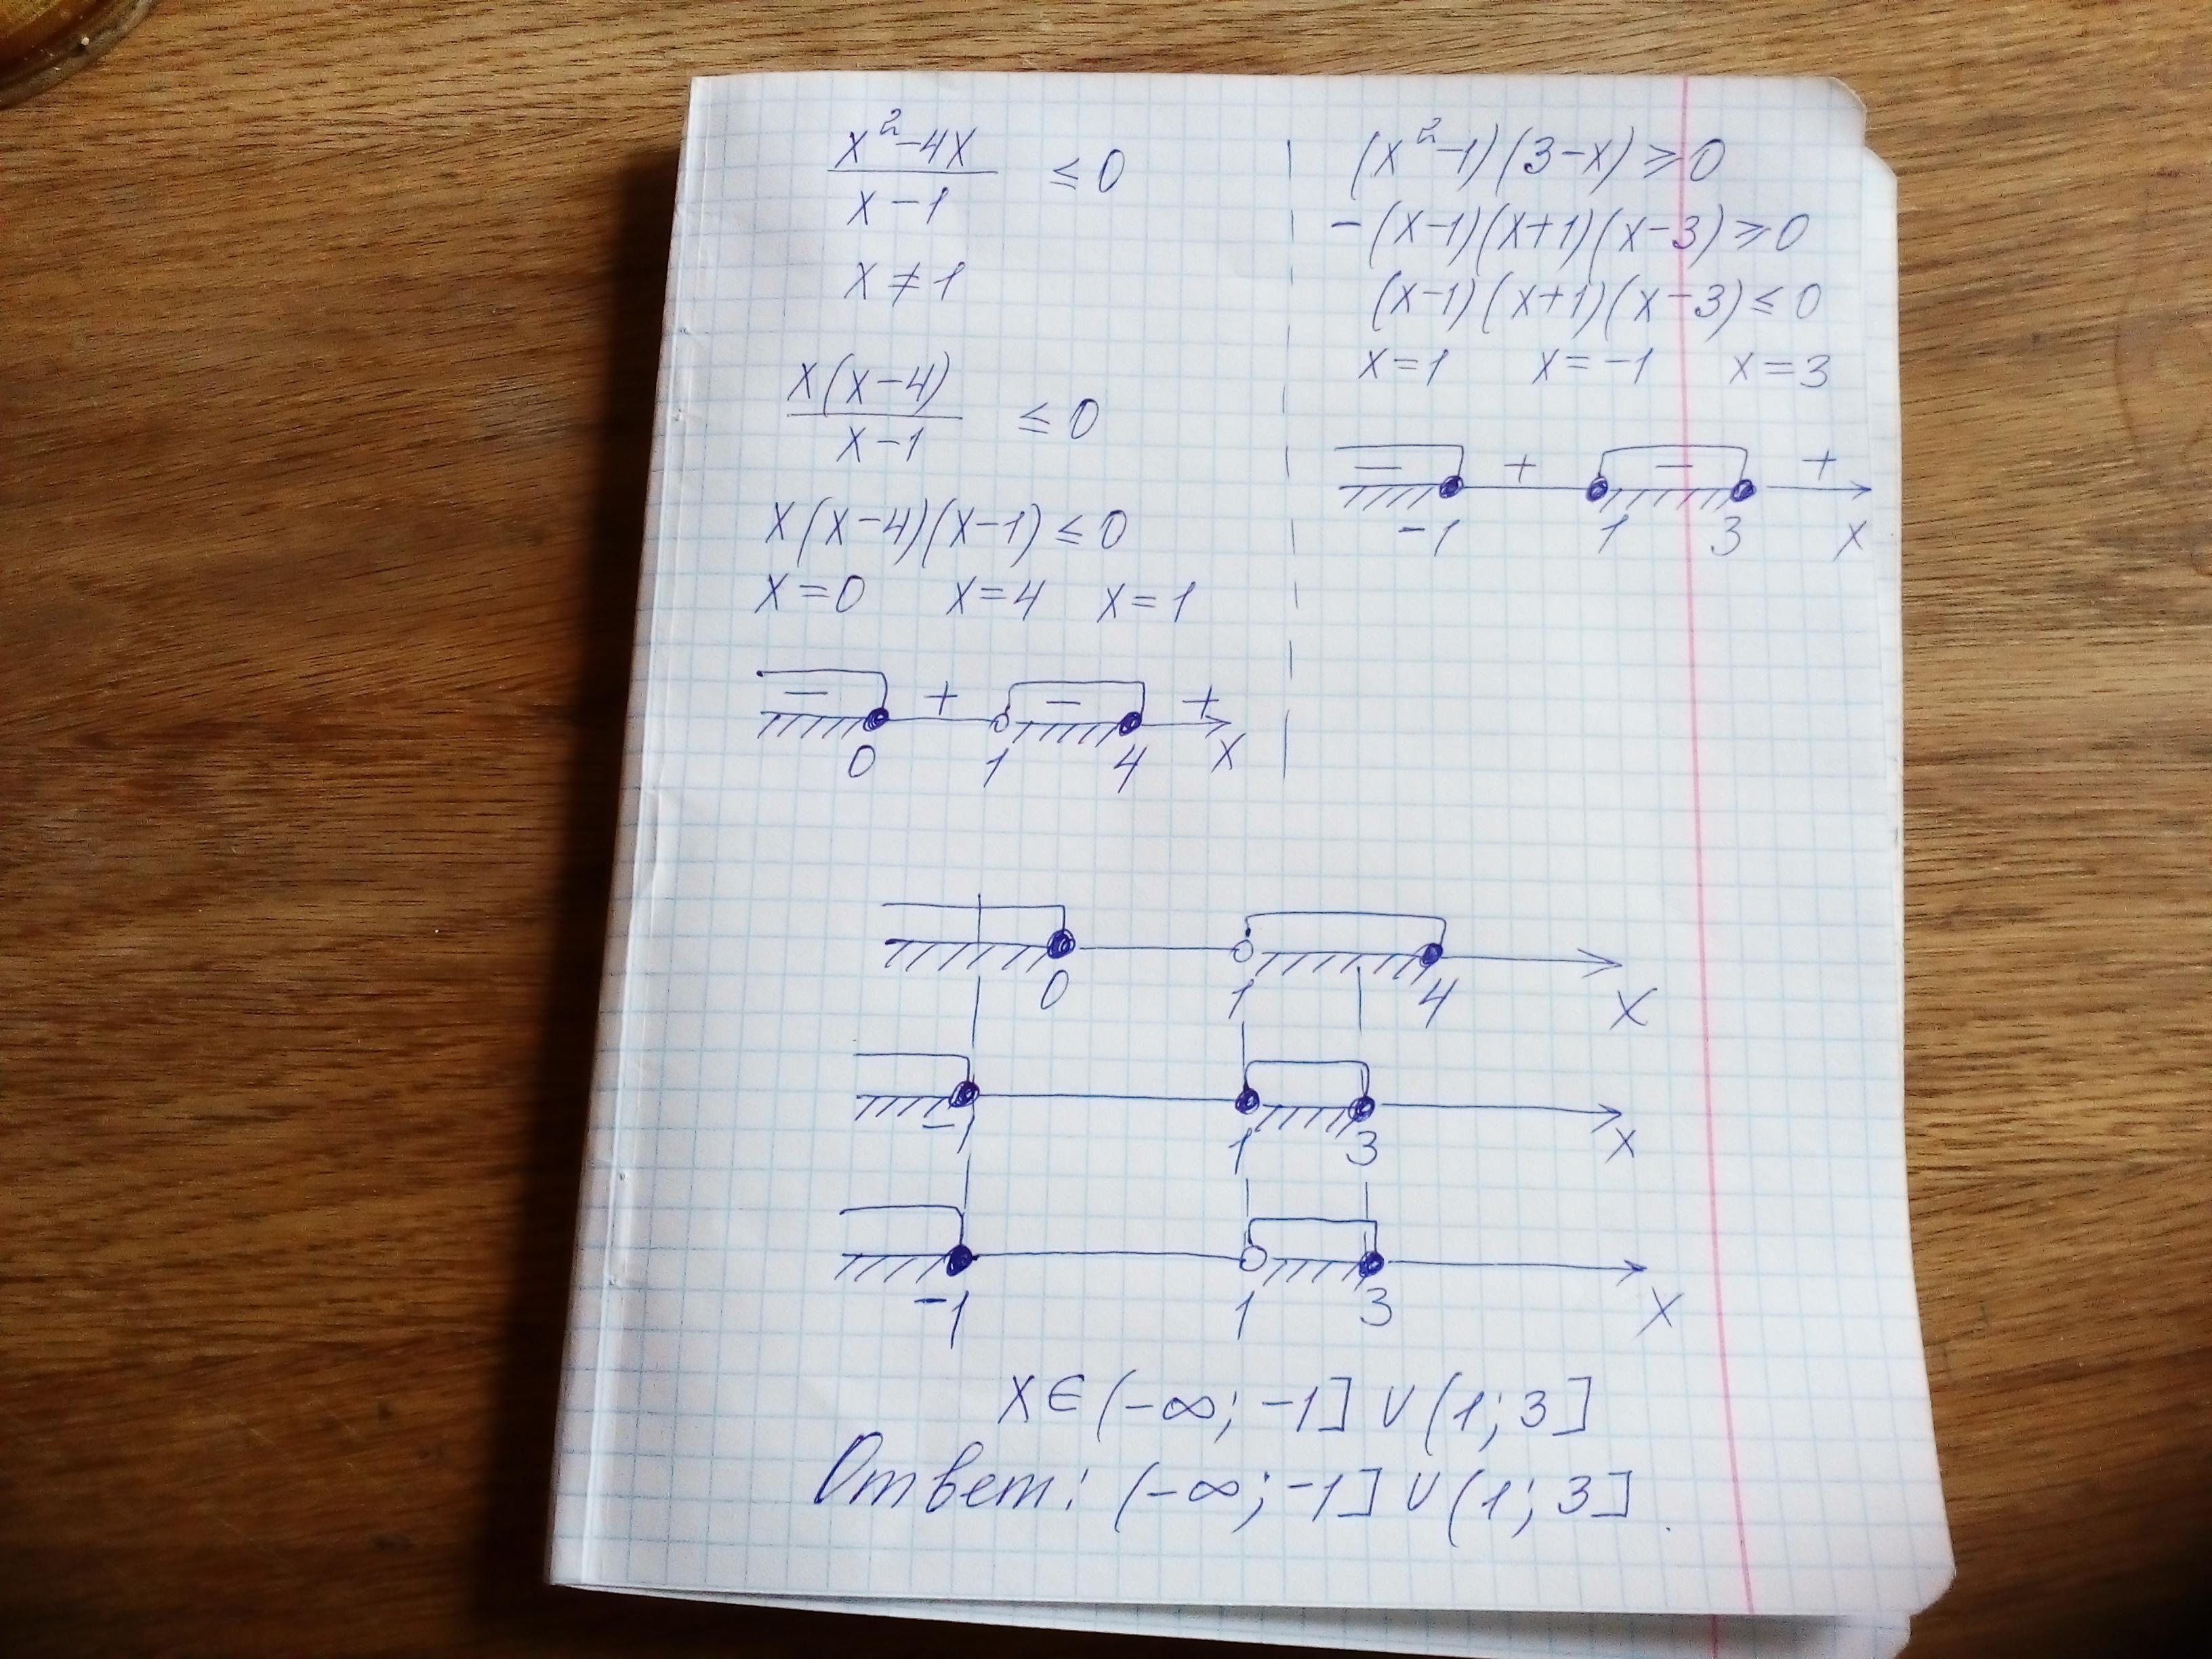 x² - 4x
x - 1
≤ 0
x ≠ 1
x(x-4)
x - 1
≤ 0
x(x-4)(x-1) ≤ 0
x = 0 x = 4 x = 1
− + − +
0 1 4 x
(x² - 1)(3 - x) ≥ 0
-(x-1)(x+1)(x-3) ≥ 0
(x-1)(x+1)(x-3) ≤ 0
x = 1 x = -1 x = 3
− + − +
-1 1 3 x
0 1 4 x
-1 1 3 x
-1 1 3 x
x ∈ (-∞; -1] ∪ (1; 3]
Ответ: (-∞; -1] ∪ (1; 3].